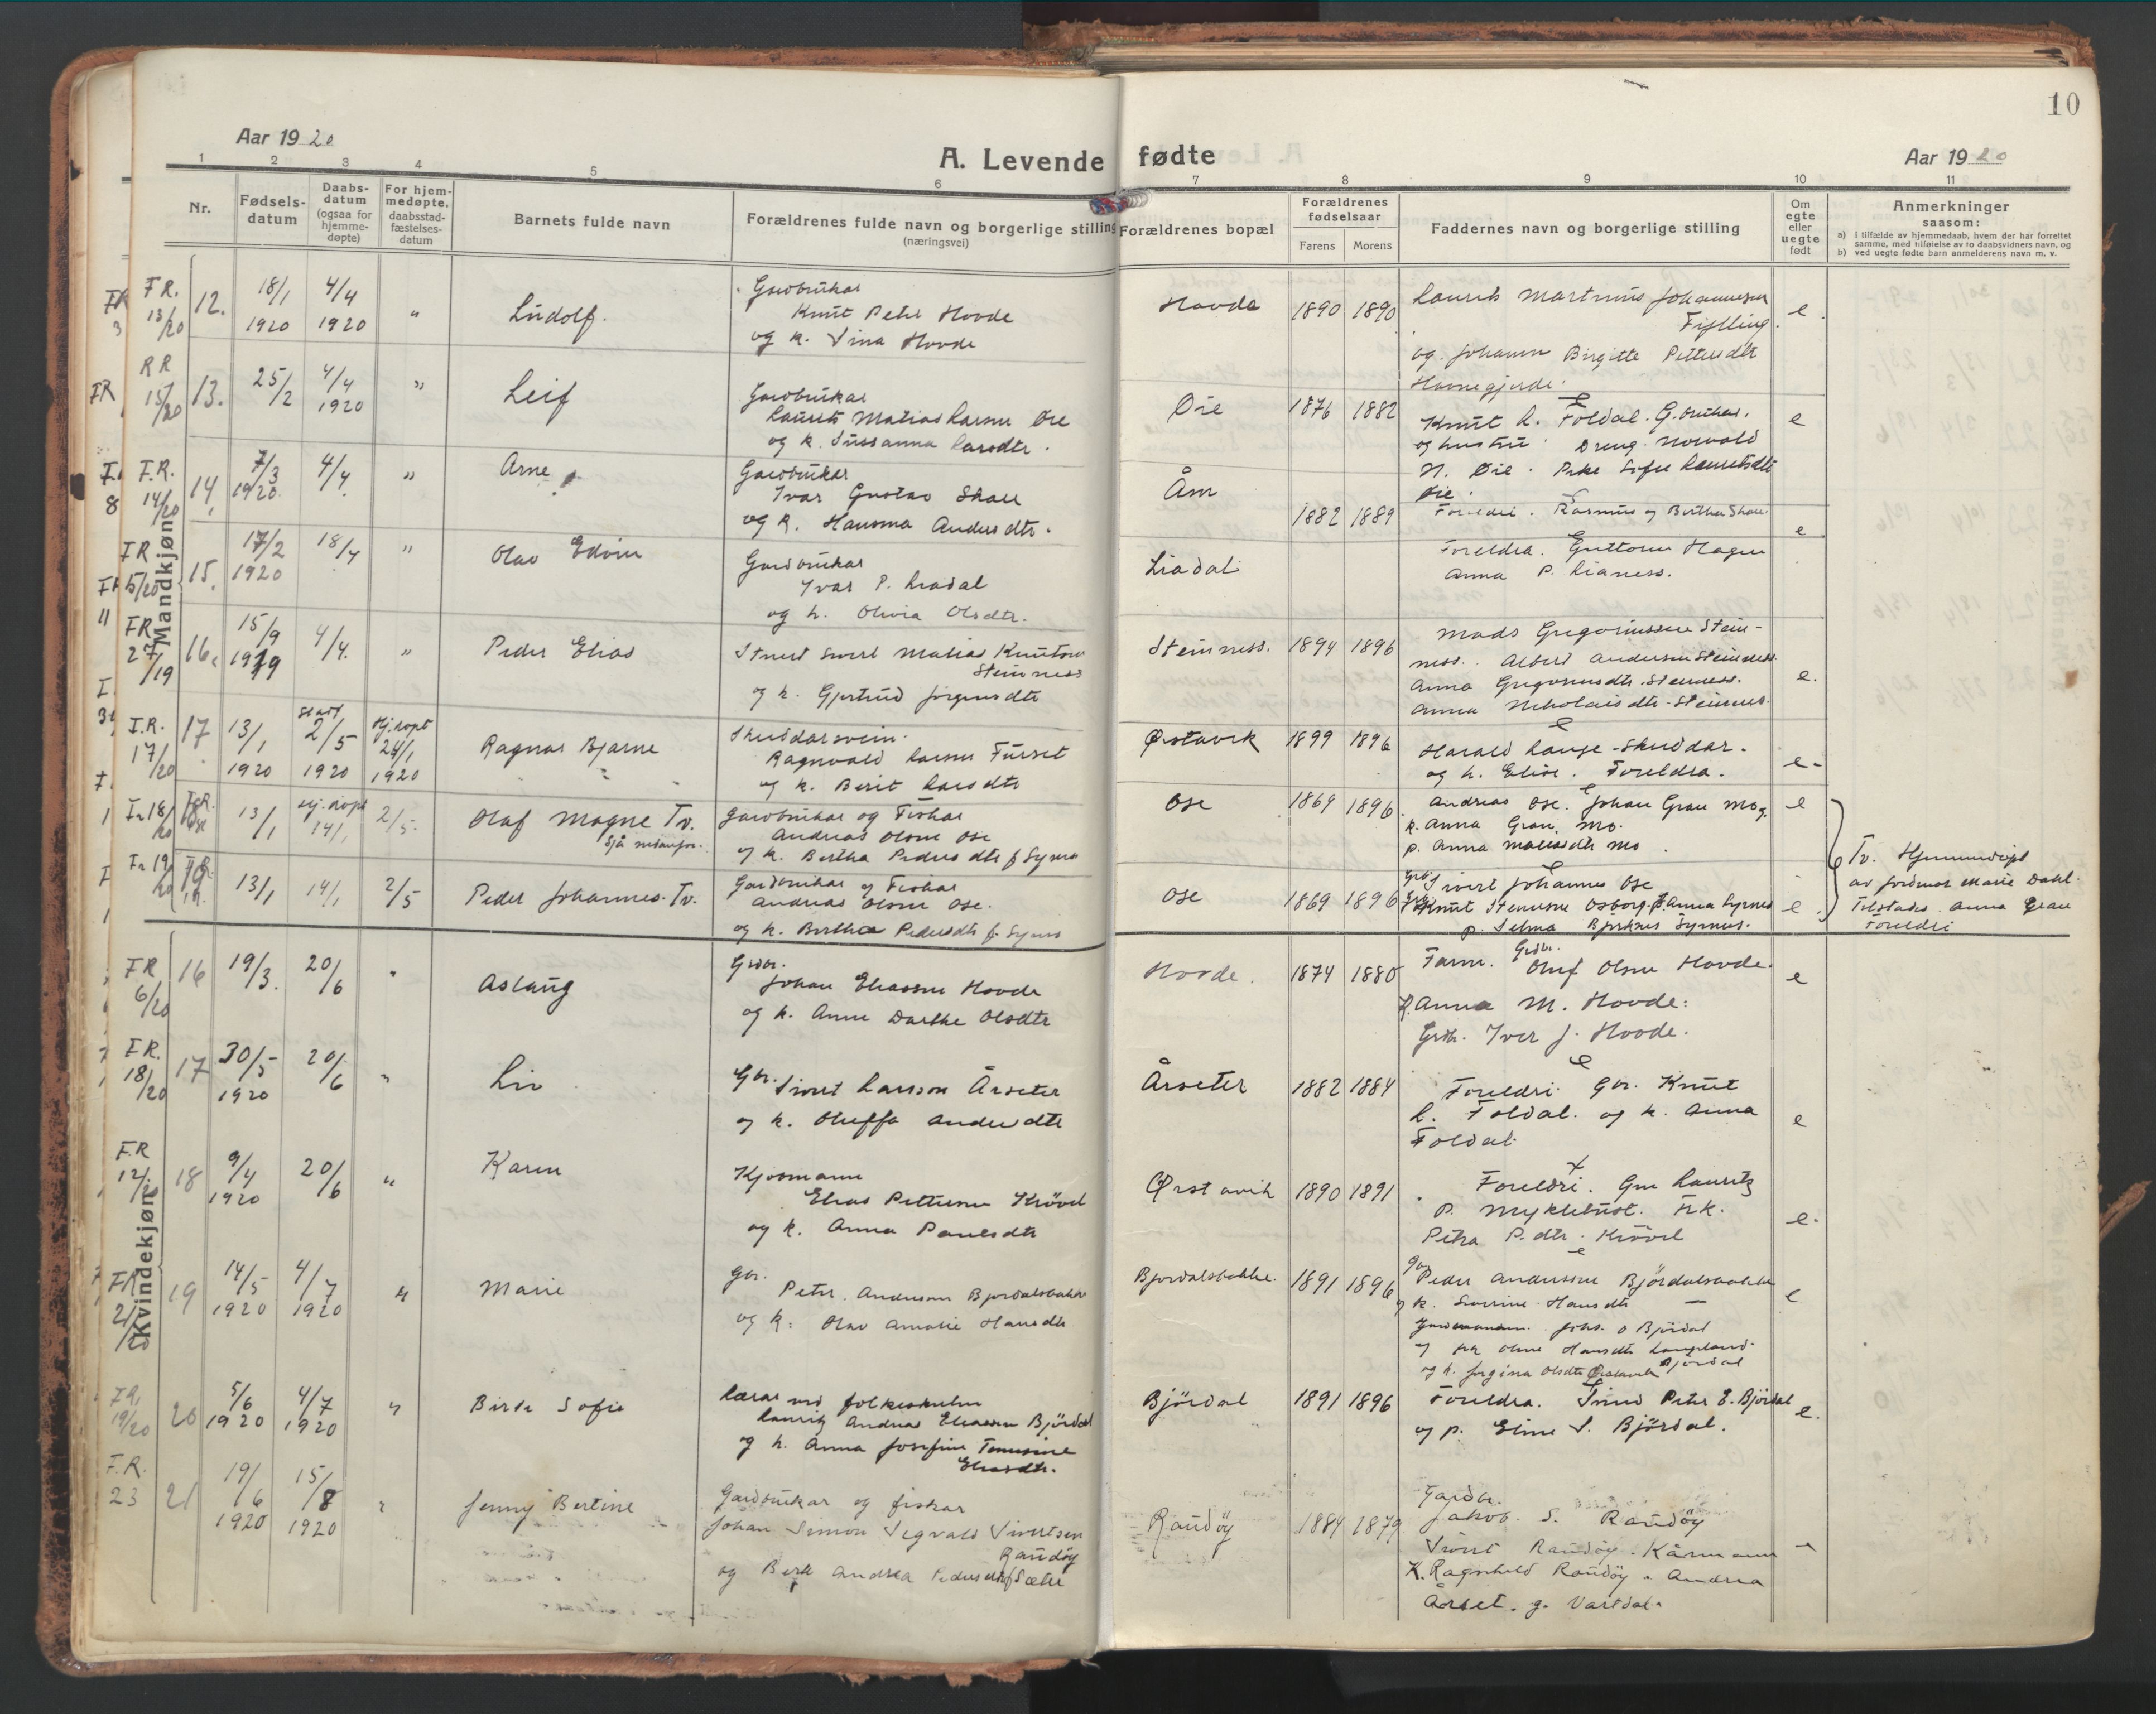 10
Aar 1920
A. Levende fødte
Aar 1920
1 2 3 4 5 6 7 8 9 10 11
Nr.
Fødsels-
datum
Daabs-
datum
(ogsaa for
hjemme-
døpte)
For hjem-
medøpte.
daabsstad-
fæstelses-
datum
Barnets fulde navn
Forældrenes fulde navn og borgerlige stilling
(næringsvei)
Forældrenes bopæl
Forældrenes
fødselsaar
Farens Morens
Faddernes navn og borgerlige stilling
Om
egte
eller
uegte
født
Anmerkninger
saasom:
a) i tilfælde av hjemmedaab, hvem der har forrettet
samme, med tilføielse av to daabsvidners navn, og
b) ved uegte fødte barn anmelderens navn m. v.
Mandkjøn
F.R. 13/20 12. 18/1 1920 4/4 1920 " Ludolf.
Gardbrukar
Knut Peter Hovde
og k. Sina Hovde
Hovde 1890 1890
Laurits Martinus Johannesen
og Johann Birgitte Pettersdtr
e.
RR 15/20 13. 25/2 4/4 1920 " Leif
Gardbrukar
Laurits Matias Larsen Øie
og k. Sussanna Larsdtr.
Øie 1876 1882
Knut L. Foldal. G.brukar.
og hustru. Dreng. Norvald
N. Øie. Pike Sofie Lauritsdtr
Øie.
e
F.R. 14/20 14. 7/3 1920 4/4. " Arne
Gardbrukar
Ivar Gustav Skare
og k. Hansina Andersdtr.
Åm 1882 1889
Foreldri. Rasmus og Bertha Skare.
e
FR 5/20 15. 17/2 1920 18/4 " Olav Edvin
Gardbrukar
Ivar P. Liadal
og k. Olivia Olsdtr.
Liadal
Foreldra. Guttorm Hagen
Anna P. Lianess.
FR 27/19 16. 15/9 1919 4/4. " Peder Elias
Matias Knutson
Steinness
og k. Gjertrud Jørgensdtr
Steinness. 1894 1896
Mads Gregoriussen Stein-
ness. Albert Andersen Steinness.
Anna Gregoriusdtr. Steinness.
Anna Nikolaisdtr. Steinnes.
e.
F.R. 17/20 17 13/1 1920 2/5 1920 Hj.døpt 24/1 1920 Ragnar Bjarne
Skreddarsvein.
Ragnvald Larsen Furset
og k. Berit Larsdtr
Ørstavik 1899 1896
Harald Lange - Skreddar.
og k. Elise. Foreldra.
e.
18 13/1 Hj. døpt 14/1 2/5. Olaf Magne Tv.
Sjå nedanfor.
Gardbrukar og Fiskar
Andreas Olsen Ose
og k. Bertha Pedersdtr f. Syrnes
Ose 1869 1896
Andreas Ose. Johan Grau Mo.
k. Anna Grau. Mo.
p. Anna Matiasdtr Mo.
e
19 13/1 14/1 2/5 Peder Johannes. Tv.
Gardbrukar og Fiskar
Andreas Olsen Ose.
og k. Bertha Pedersdtr f. Syrnes
Ose 1869 1896
Sivert Johannes Ose
Knut Steinesen Osborg. p. Anna Syrnes
p. Selma Bjørknes Syrnes.
e
Tv. Hjemmedøpt
av jordmor Marie Dahl.
Tilstades. Anna Grau
Foreldri
Kvindekjøn
FR 6/20 16 19/3. 20/6 " Aslaug
Grdbr.
Johan Eliassen Hovde
og k. Anne Dorthe Olsdtr
Hovde. 1874 1880
Farm. Grdbr. Oluf Olsen Hovde.
k. Anna M. Hovde.
Grdbr. Iver J. Hovde.
e
F.R. 18/20 17 30/5 1920 20/6 " Liv
Gbr. Sivert Larsson Årseter
og k. Oluffa Andersdtr
Årseter 1882 1884
Foreldri. Gbr. Knut
L. Foldal. og k. Anna
Foldal.
e
F.R 12/20 18 9/4 1920 20/6 " Karen
Kjøpmann
Elias Pettersen Krøvel
og k. Anna Paulsdtr
Ørstavik 1890 1891
Foreldri. Gm Lauritz
P. Myklebust. Frk.
Petra P.dtr. Krøvel
e.
FR 21/20 19 14/5 1920 4/7 1920 " Marie
Gbr.
Peter. Andersen Bjørdalsbakke
og k. Olav Amalie Hansdtr
Bjørdalsbakke. 1891 1896
Peder Anderssen Bjørdalsbakke
og k. Severine Hansdtr —
Johs. O Bjørdal
og k. Jørgina Olsdtr Bjørdal
e
F.R. 19/20 20 5/6 1920 4/7 1920 " Birte Sofie
Lærar ved folkeskulen
Lauritz Andreas Eliassen Bjørdal
og k. Anna Josefine Tomasine
Eliasdtr.
Bjørdal 1891 1896
Foreldra. Peter E. Bjørdal
og p. Eline S. Bjørdal.
e.
F.R. 23 21 19/6 1920 15/8 1920 " Jenny Bertine
Gardbrukar og fiskar
Johan Simon Segvald Sivertsen
Raudøy
og Berte Andrea Pedersdtr f. Sæter
Raudøy 1884 1879
Gardbr.
Jakob. S. Raudøy
Sivert Raudøy. Kårmann
K. Ragnhild Raudøy. Andrea
Årset. g. Vartdal.